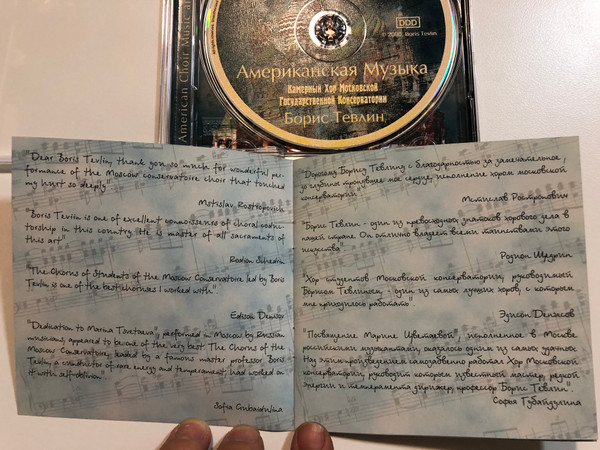 American Choir Music
DDD
℗ 2000, Boris Tevlin
Американская Музыка
Камерный Хор Московской
Государственной Консерватории
Борис Тевлин
"Dear Boris Tevlin, thank you so much for wonderful per-
formance of the Moscow conservatoire choir that touched
my hurt so deeply"
Mstislav Rostropovich
"Boris Tevlin is one of excellent connoisseurs of choral conduc-
torship in this country. He is master of all sacraments of
this art"
Rodion Schedrin
"The Chorus of Students of the Moscow Conservatoire led by Boris
Tevlin is one of the best choruses I worked with"
Edison Denisov
"Dedication to Marina Tsvetaeva", performed in Moscow by Russian
musicians, appeared to be one of the very best. The Chorus of the
Moscow Conservatoire, leaded by a famous master professor Boris
Tevlin, a conductor of rare energy and temperament, had worked on
it with self-oblivion."
Sofia Gubaidulina
"Дорогому Борису Тевлину с благодарностью за замечательное,
до глубины тронувшее мое сердце, исполнение хором московской
консерватории"
Мстислав Ростропович
"Борис Тевлин - один из превосходных знатоков хорового дела в
нашей стране. Он отлично владеет всеми таинствами этого
искусства"
Родион Щедрин
"Хор студентов Московской консерватории, руководимый
Борисом Тевлиным, - один из самых лучших хоров, с которым
мне приходилось работать"
Эдисон Денисов
"Посвящение Марине Цветаевой", исполненное в Москве
российскими музыкантами, оказалось одним из самых удачных.
Над этим произведением самозабвенно работал Хор Московской
консерватории, руководит которым известный мастер, редкой
энергии и темперамента дирижер, профессор Борис Тевлин."
Софья Губайдулина